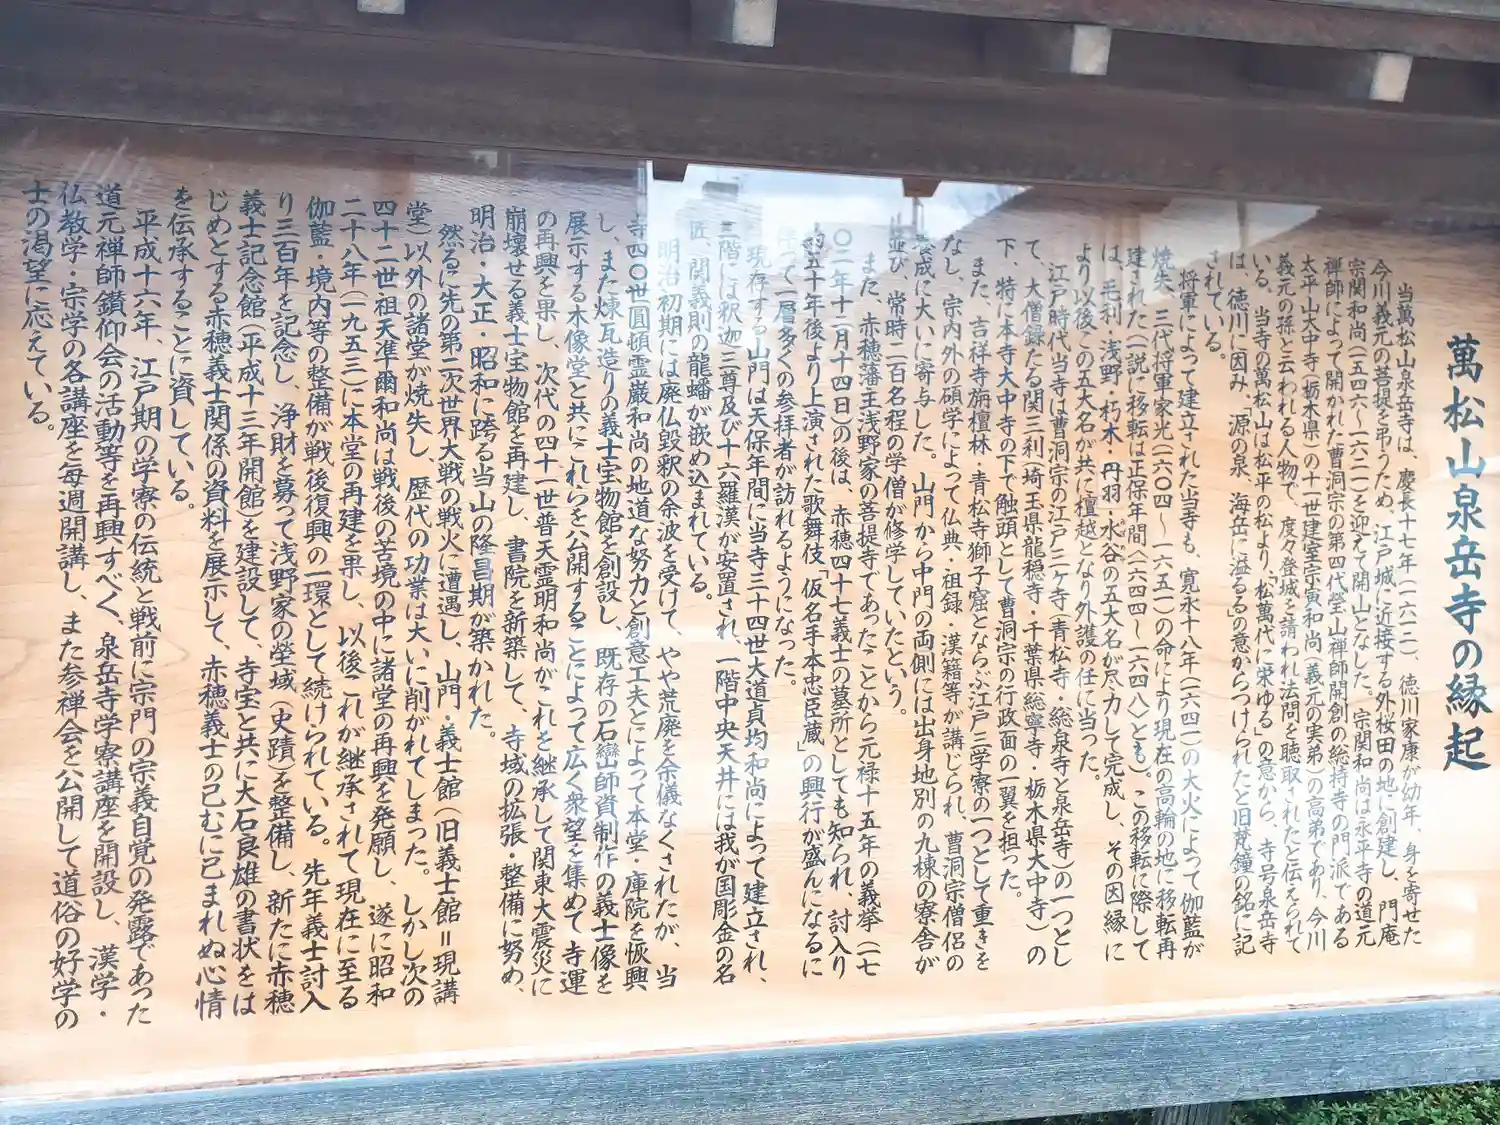 萬松山泉岳寺の縁起
当萬松山泉岳寺は、慶長十七年(一六一二)、徳川家康が幼年、身を寄せた
今川義元の菩提を弔うため、江戸城に近接する外桜田の地に創建し、門庵
宗関和尚(一五四六~一六二一)を迎えて開山となした。宗関和尚は永平寺の道元
禅師によって開かれた曹洞宗の第四代瑩山禅師開創の総持寺の門派である
太平山大中寺(栃木県)の十一世建室宗寅和尚(義元の実弟)の高弟であり、今川
義元の孫と云われる人物で、度々登城を請われ法問を聴取されたと伝えられて
いる。当寺の萬松山は松平の松より、「松萬代に栄ゆる」の意から、寺号泉岳寺
は、徳川に因み、「源の泉、海岳に溢るる」の意からつけられたと旧梵鐘の銘に記
されている。
将軍によって建立された当寺も、寛永十八年(一六四一)の大火によって伽藍が
焼失、三代将軍家光(一六〇四~一六五一)の命により現在の高輪の地に移転再
建された(一説に移転は正保年間〈一六四四~一六四八〉とも)。この移転に際して
は、毛利・浅野・朽木・丹羽・水谷の五大名が尽力して完成し、その因縁に
より以後この五大名が共に檀越となり外護の任に当った。
江戸時代当寺は曹洞宗の江戸三ヶ寺(青松寺・総泉寺と泉岳寺)の一つとし
て、大僧録たる関三刹(埼玉県龍穏寺・千葉県総寧寺・栃木県大中寺)の
下、特に本寺大中寺の下で触頭として曹洞宗の行政面の一翼を担った。
また、吉祥寺旃檀林・青松寺獅子窟とならぶ江戸三学寮の一つとして重きを
なし、宗内外の碩学によって仏典・祖録・漢籍等が講じられ、曹洞宗僧侶の
養成に大いに寄与した。山門から中門の両側には出身地別の九棟の寮舎が
並び、常時二百名程の学僧が修学していたという。
また、赤穂藩主浅野家の菩提寺であったことから元禄十五年の義挙(一七
〇二年十二月十四日)の後は、赤穂四十七義士の墓所としても知られ、討入り
約五十年後より上演された歌舞伎「仮名手本忠臣蔵」の興行が盛んになるに
従って一層多くの参拝者が訪れるようになった。
現存する山門は天保年間に当寺三十四世大道貞均和尚によって建立され、
二階には釈迦三尊及び十六羅漢が安置され、一階中央天井には我が国彫金の名
匠、関義則の龍蟠が嵌め込まれている。
明治初期には廃仏毀釈の余波を受けて、やや荒廃を余儀なくされたが、当
寺四〇世圓頓霊巌和尚の地道な努力と創意工夫とによって本堂・庫院を恢興
し、また煉瓦造りの義士宝物館を創設し、既存の石巒師資制作の義士像を
展示する木像堂と共にこれらを公開することによって広く衆望を集めて寺運
の再興を果し、次代の四十一世普天霊明和尚がこれを継承して関東大震災に
崩壊せる義士宝物館を再建し、書院を新築して、寺域の拡張・整備に努め、
明治・大正・昭和に跨る当山の隆昌期が築かれた。
然るに先の第二次世界大戦の戦火に遭遇し、山門・義士館(旧義士館=現講
堂)以外の諸堂が焼失し、歴代の功業は大いに削がれてしまった。しかし次の
四十二世祖天準爾和尚は戦後の苦境の中に諸堂の再興を発願し、遂に昭和
二十八年(一九五三)に本堂の再建を果し、以後これが継承されて現在に至る
伽藍・境内等の整備が戦後復興の一環として続けられている。先年義士討入
り三百年を記念し、浄財を募って浅野家の塋域(史蹟)を整備し、新たに赤穂
義士記念館(平成十三年開館)を建設して、寺宝と共に大石良雄の書状をは
じめとする赤穂義士関係の資料を展示して、赤穂義士の已むに已まれぬ心情
を伝承することに資している。
平成十六年、江戸期の学寮の伝統と戦前に宗門の宗義自覚の発露であった
道元禅師鑽仰会の活動等を再興すべく、泉岳寺学寮講座を開設し、漢学・
仏教学・宗学の各講座を毎週開講し、また参禅会を公開して道俗の好学の
士の渇望に応えている。